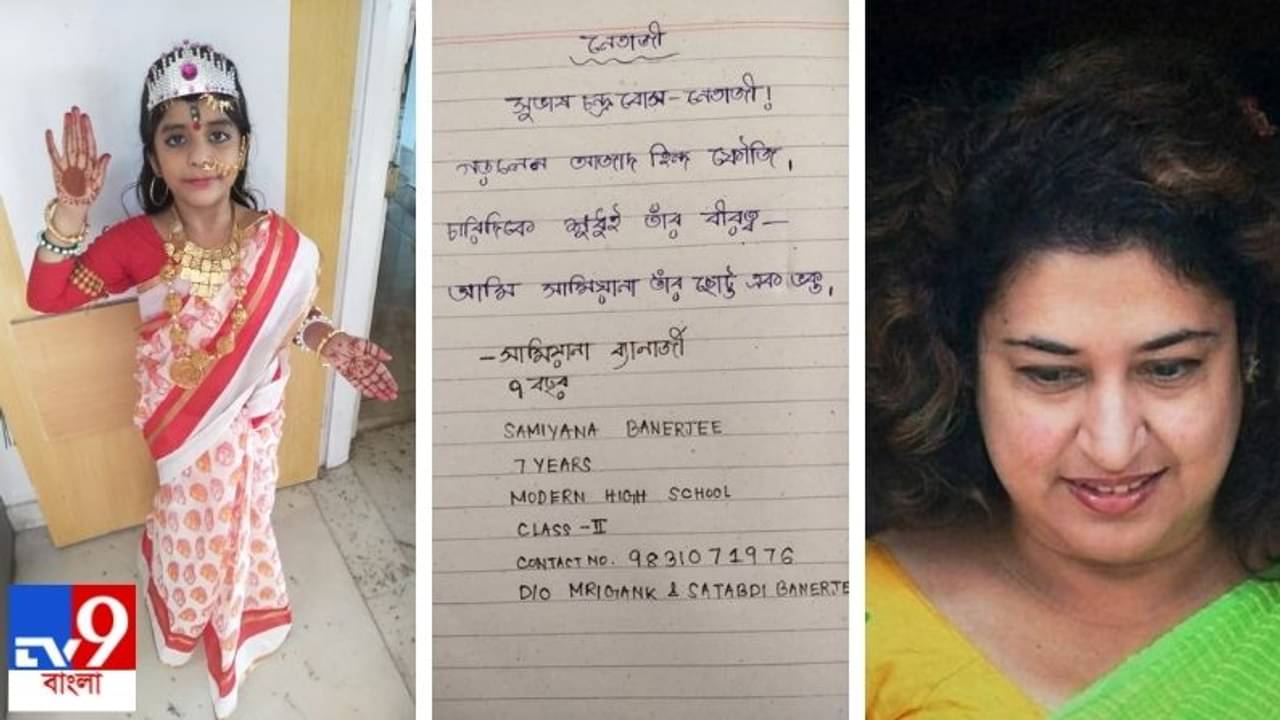 নেতাজী
সুভাষ চন্দ্র বোস - নেতাজী!
গড়লেন আজাদ হিন্দ ফৌজি।
চারিদিকে শুধুই তাঁর বীরত্ব —
আমি সামিয়ানা তাঁর ছোট্ট এক ভক্ত।
- সামিয়ানা ব্যানার্জী
৭ বছর
SAMIYANA BANERJEE
7 YEARS
MODERN HIGH SCHOOL
CLASS - II
CONTACT NO. 9831071976
D/O MRIGANK & SATABDI BANERJE
TV9
বাংলা